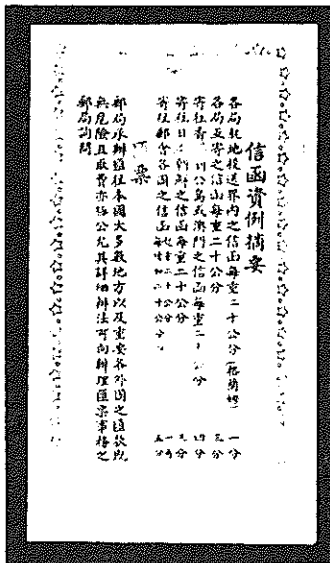 信函資例摘要
各局就地投送界內之信函每重二十公分(格蘭姆) 一分
各局互寄之信函每重二十公分 三分
寄往香 劉公島或澳門之信函每重二十公分 四分
寄往日 朝鮮之信函每重二十公分 三分
寄往郵會各國之信函每 五分
票
郵局承辦匯往本國大多數地方以及重要各外國之匯款既
無危險且取費亦極公允其詳細辦法可向辦理匯票事務之
郵局詢問